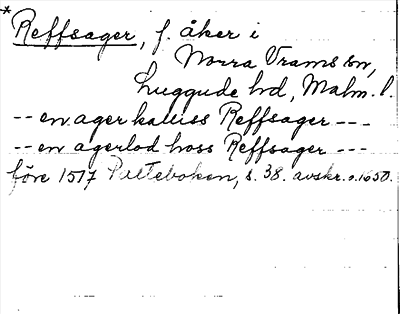 * Reffsager, f. åker i
Norra Vrams sn,
Luggude hd, Malm. l.
-- en ager kaliss Reffsager ---
-- en agerlod hoss Reffsager ---
före 1517 Palteboken, s. 38. avskr. o. 1650.